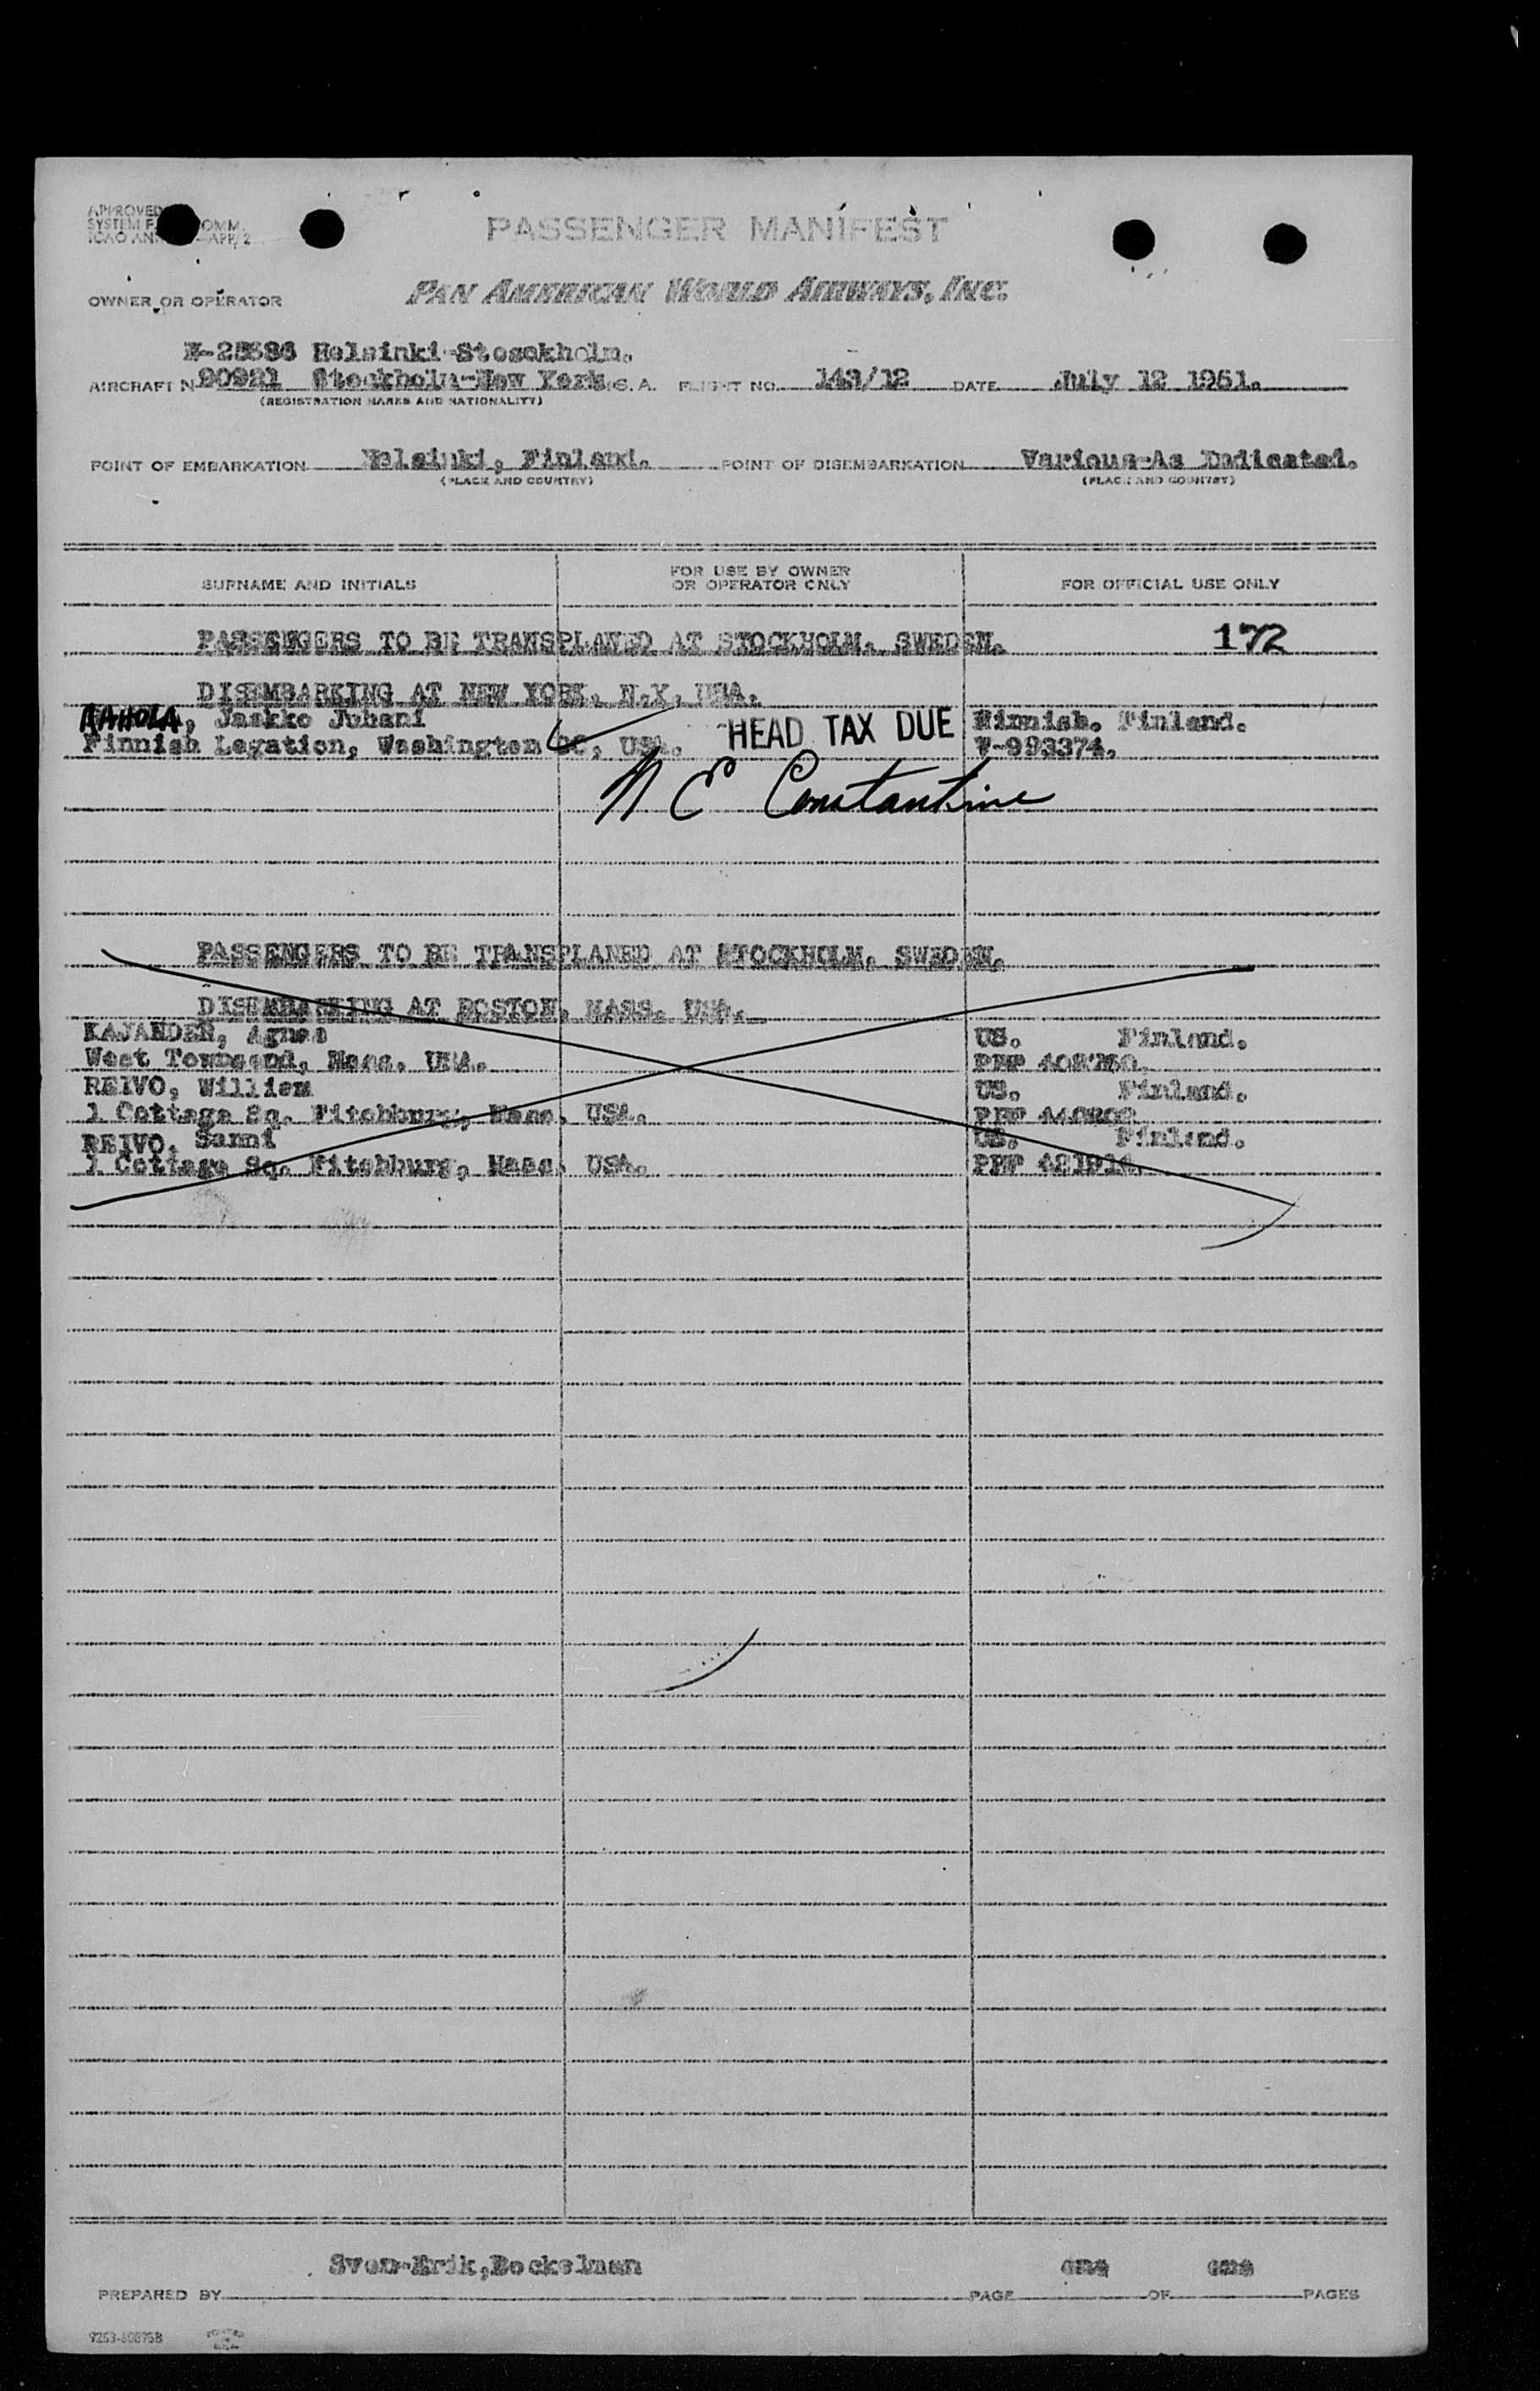 APPROVED
SYSTEM F OMM.
ICAO ANN —APP. 2
PASSENGER MANIFEST
OWNER OR OPERATOR
PAN AMERICAN WORLD AIRWAYS, INC.
Helsinki-Stosckholm.
AIRCRAFT N 90921 Stockholm-New York S. A. FLIGHT NO. 143/12 DATE July 12 1951.
(REGISTRATION MARKS AND NATIONALITY)
POINT OF EMBARKATION Helsinki, Finland. POINT OF DISEMBARKATION Various-As Indicated.
(PLACE AND COUNTRY) (PLACE AND COUNTRY)
SURNAME AND INITIALS
FOR USE BY OWNER
OR OPERATOR ONLY
FOR OFFICIAL USE ONLY
PASSENGERS TO BE TRANSPLANED AT STOCKHOLM, SWEDEN. 172
DISEMBARKING AT NEW YORK, N.Y, USA.
AAHOLA, Jaakko Juhani HEAD TAX DUE Finnish. Finland.
Finnish Legation, Washington DC, USA. V-993374.
N E Constantine
PASSENGERS TO BE TRANSPLANED AT STOCKHOLM, SWEDEN.
DISEMBARKING AT BOSTON, MASS. USA.
KAJANDER, Agnes US. Finland.
West Townsend, Mass. USA. PPP
REIVO, William US. Finland.
1 Cottage Sq. Fitchburg, Mass. USA. PPP
REIVO, Sanni US. Finland.
1 Cottage Sq. Fitchburg, Mass. USA. PPP
Sven-Erik,Bockelman
PREPARED BY PAGE one OF one PAGES